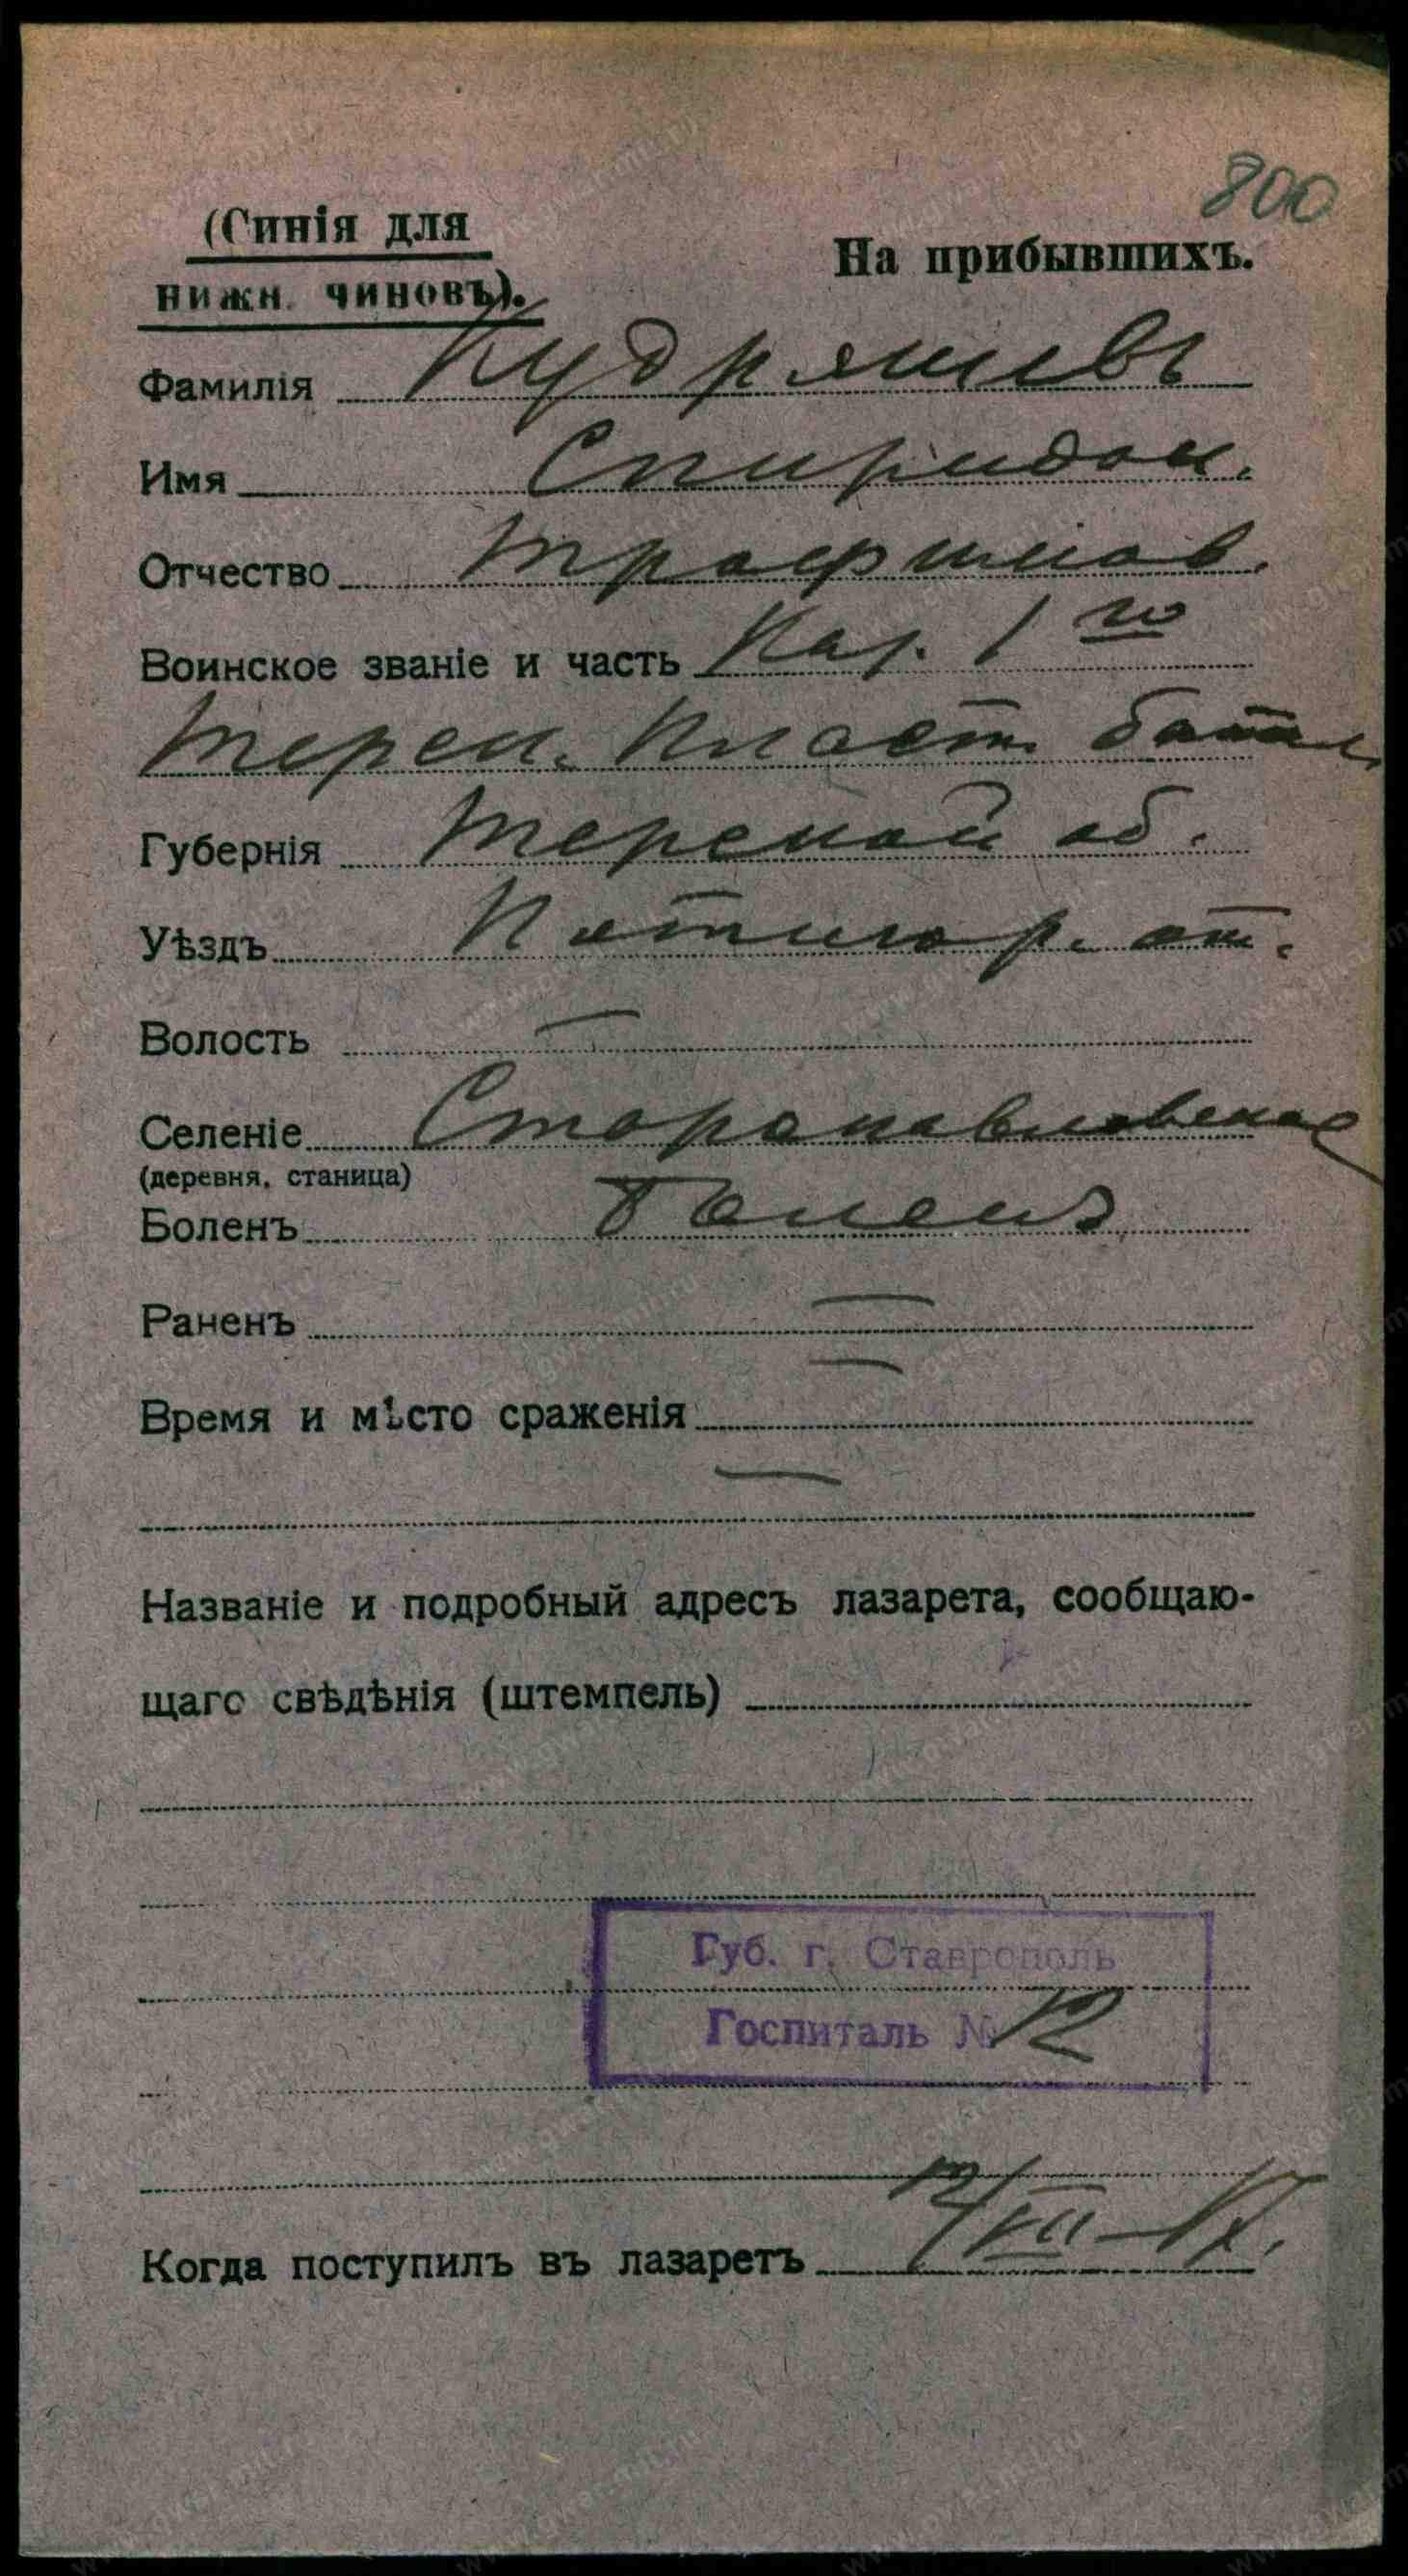 800
(Синія для
нижн. чиновъ).
На прибывшихъ.
Фамилія Кудряшевъ
Имя Спиридон.
Отчество Трофимов.
Воинское званіе и часть Каз. 1го
Терск. Пласт. батал.
Губернія Терской об.
Уѣздъ Пятигор. от.
Волость —
Селеніе Старопавловская
(деревня, станица)
Боленъ Боленъ
Раненъ —
Время и мѣсто сраженія —
—
Названіе и подробный адресъ лазарета, сообщаю-
щаго свѣдѣнія (штемпель)
Губ. г. Ставрополь
Госпиталь № 12
Когда поступилъ въ лазаретъ